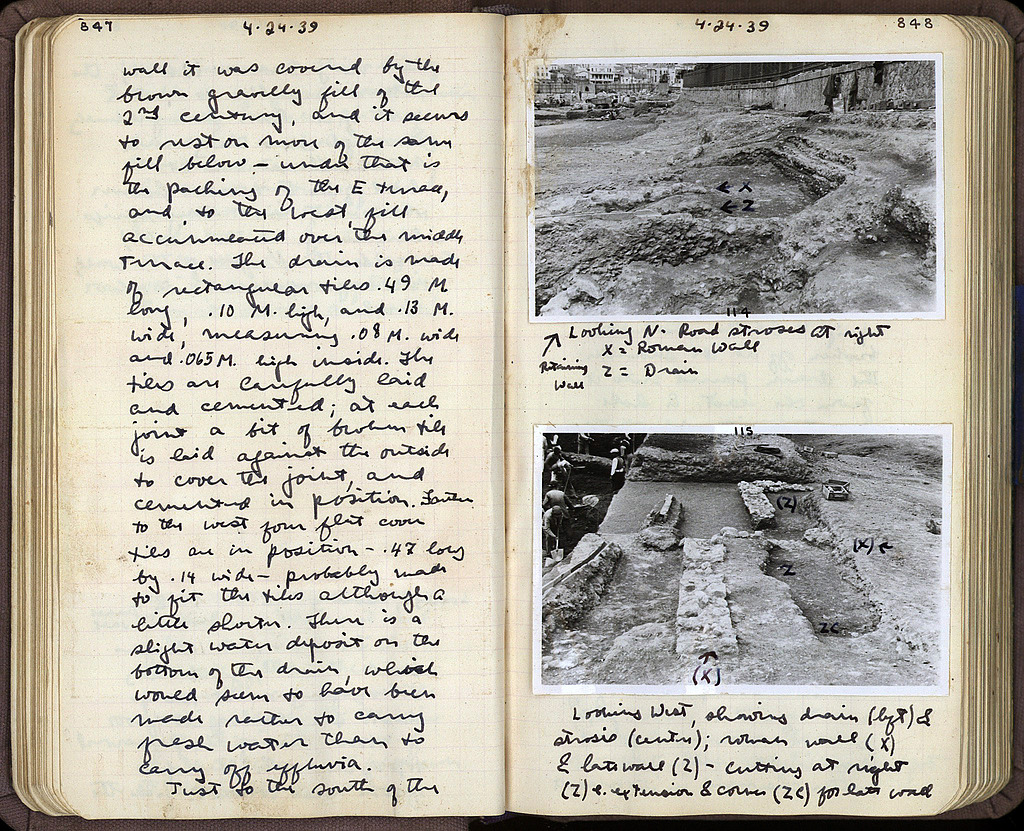 847
4.24.39
wall it was covered by the
brown gravelly fill of the
2nd century, and it seems
to rest on more of the same
fill below - under that is
the packing of the E terrace,
and, to the west, fill
accumulated over the middle
Terrace. The drain is made
of rectangular tiles .49 M
long, .10 M. high, and .13 M.
wide, measuring .08 M. wide
and .065 M. high inside. The
tiles are carefully laid
and cemented; at each
joint a bit of broken tile
is laid against the outside
to cover the joint, and
cemented in position. Farther
to the west four flat cover
tiles are in position - .47 long
by .14 wide - probably made
to fit the tiles although a
little shorter. There is a
slight water deposit on the
bottom of the drain, which
would seem to have been
made rather to carry
fresh water than to
carry off effluvia.
Just to the south of the
4.24.39
848
← X
← Z
114
↗ Looking N. Road stroses at right
X = Roman Wall
Retaining
Wall
Z = Drain
115
(Z)
(X) ←
Z
ZC
(X)
Looking West, showing drain (left) &
strosis (centre); roman wall (X)
& late wall (Z) - cutting at right
(Z) e. extension & corner (ZC) for late wall